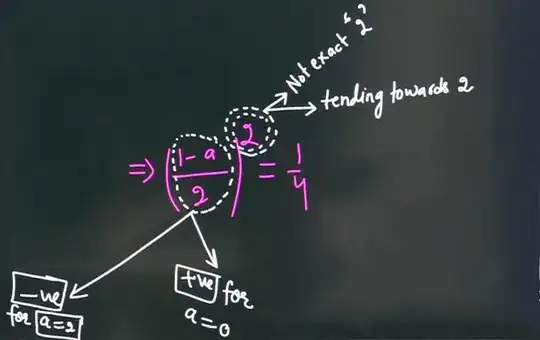 Not exact '2'
tending towards 2
⇒ ((1-a)/2)^2 = 1/4
-ve
for a=2
+ve for
a=0